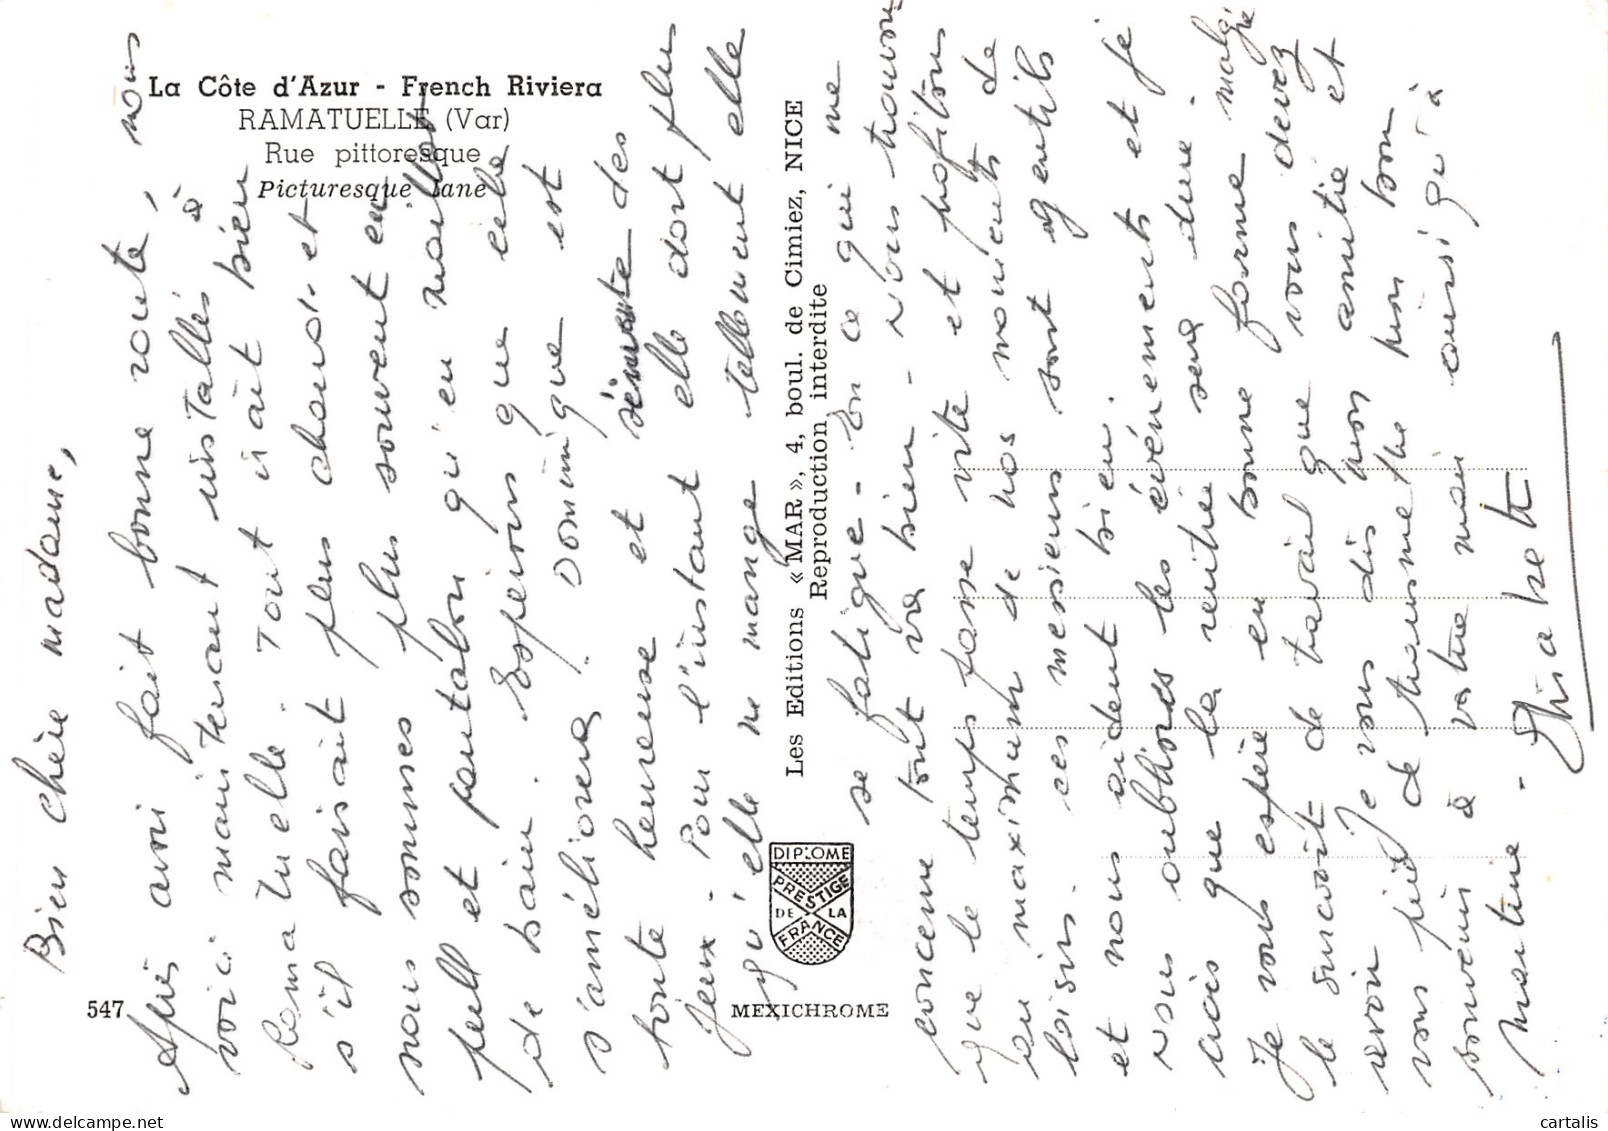 La Côte d'Azur - French Riviera
RAMATUELLE (Var)
Rue pittoresque
Picturesque lane
Bien chère madame,
Après avoir fait bonne route, nous
voici maintenant installés à
Ramatuelle. Tout irait bien
s'il faisait plus chaud et
nous sommes plus souvent en
pull et pantalon qu'en maillot
de bain. Espérons que cela
s'améliorera. Dominique est
toute heureuse et des
jeux. Pour l'instant elle dort plus
qu'elle ne mange tellement elle
se fatigue. En ce qui me
concerne tout va bien. Nous trouvons
que le temps passe vite et profitons
au maximum de nos moments de
loisirs. ces messieurs sont gentils
et nous aident bien.
Nous oublions les événements et je
crois que la rentrée sera dure.
Je vous espère en bonne forme malgré
le surcroît de travail que vous devez
avoir. Je vous dis mon amitié et
vous prie de transmettre mon bon
souvenir à votre mari ainsi qu'à
martine.
Elisabeth
Les Editions « MAR », 4, boul. de Cimiez, NICE
Reproduction interdite
DIPLOME
PRESTIGE
DE LA
FRANCE
547
MEXICHROME
delcampe.net
cartalis